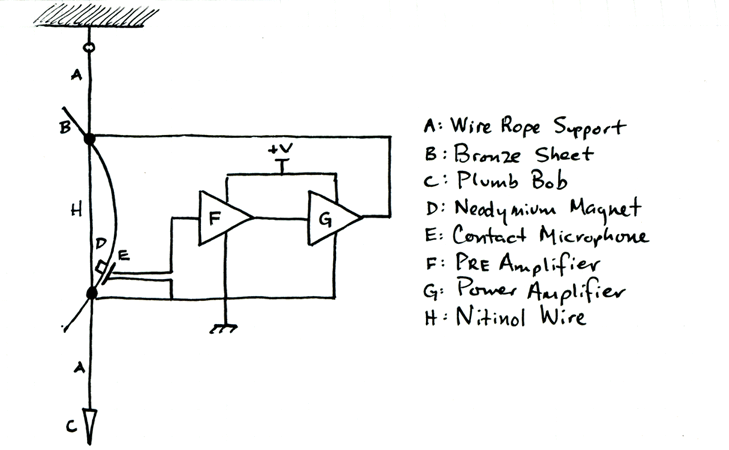 A
B
+V
F
G
H
D
E
A
C
A: Wire Rope Support
B: Bronze Sheet
C: Plumb Bob
D: Neodymium Magnet
E: Contact Microphone
F: PRE Amplifier
G: Power Amplifier
H: Nitinol Wire